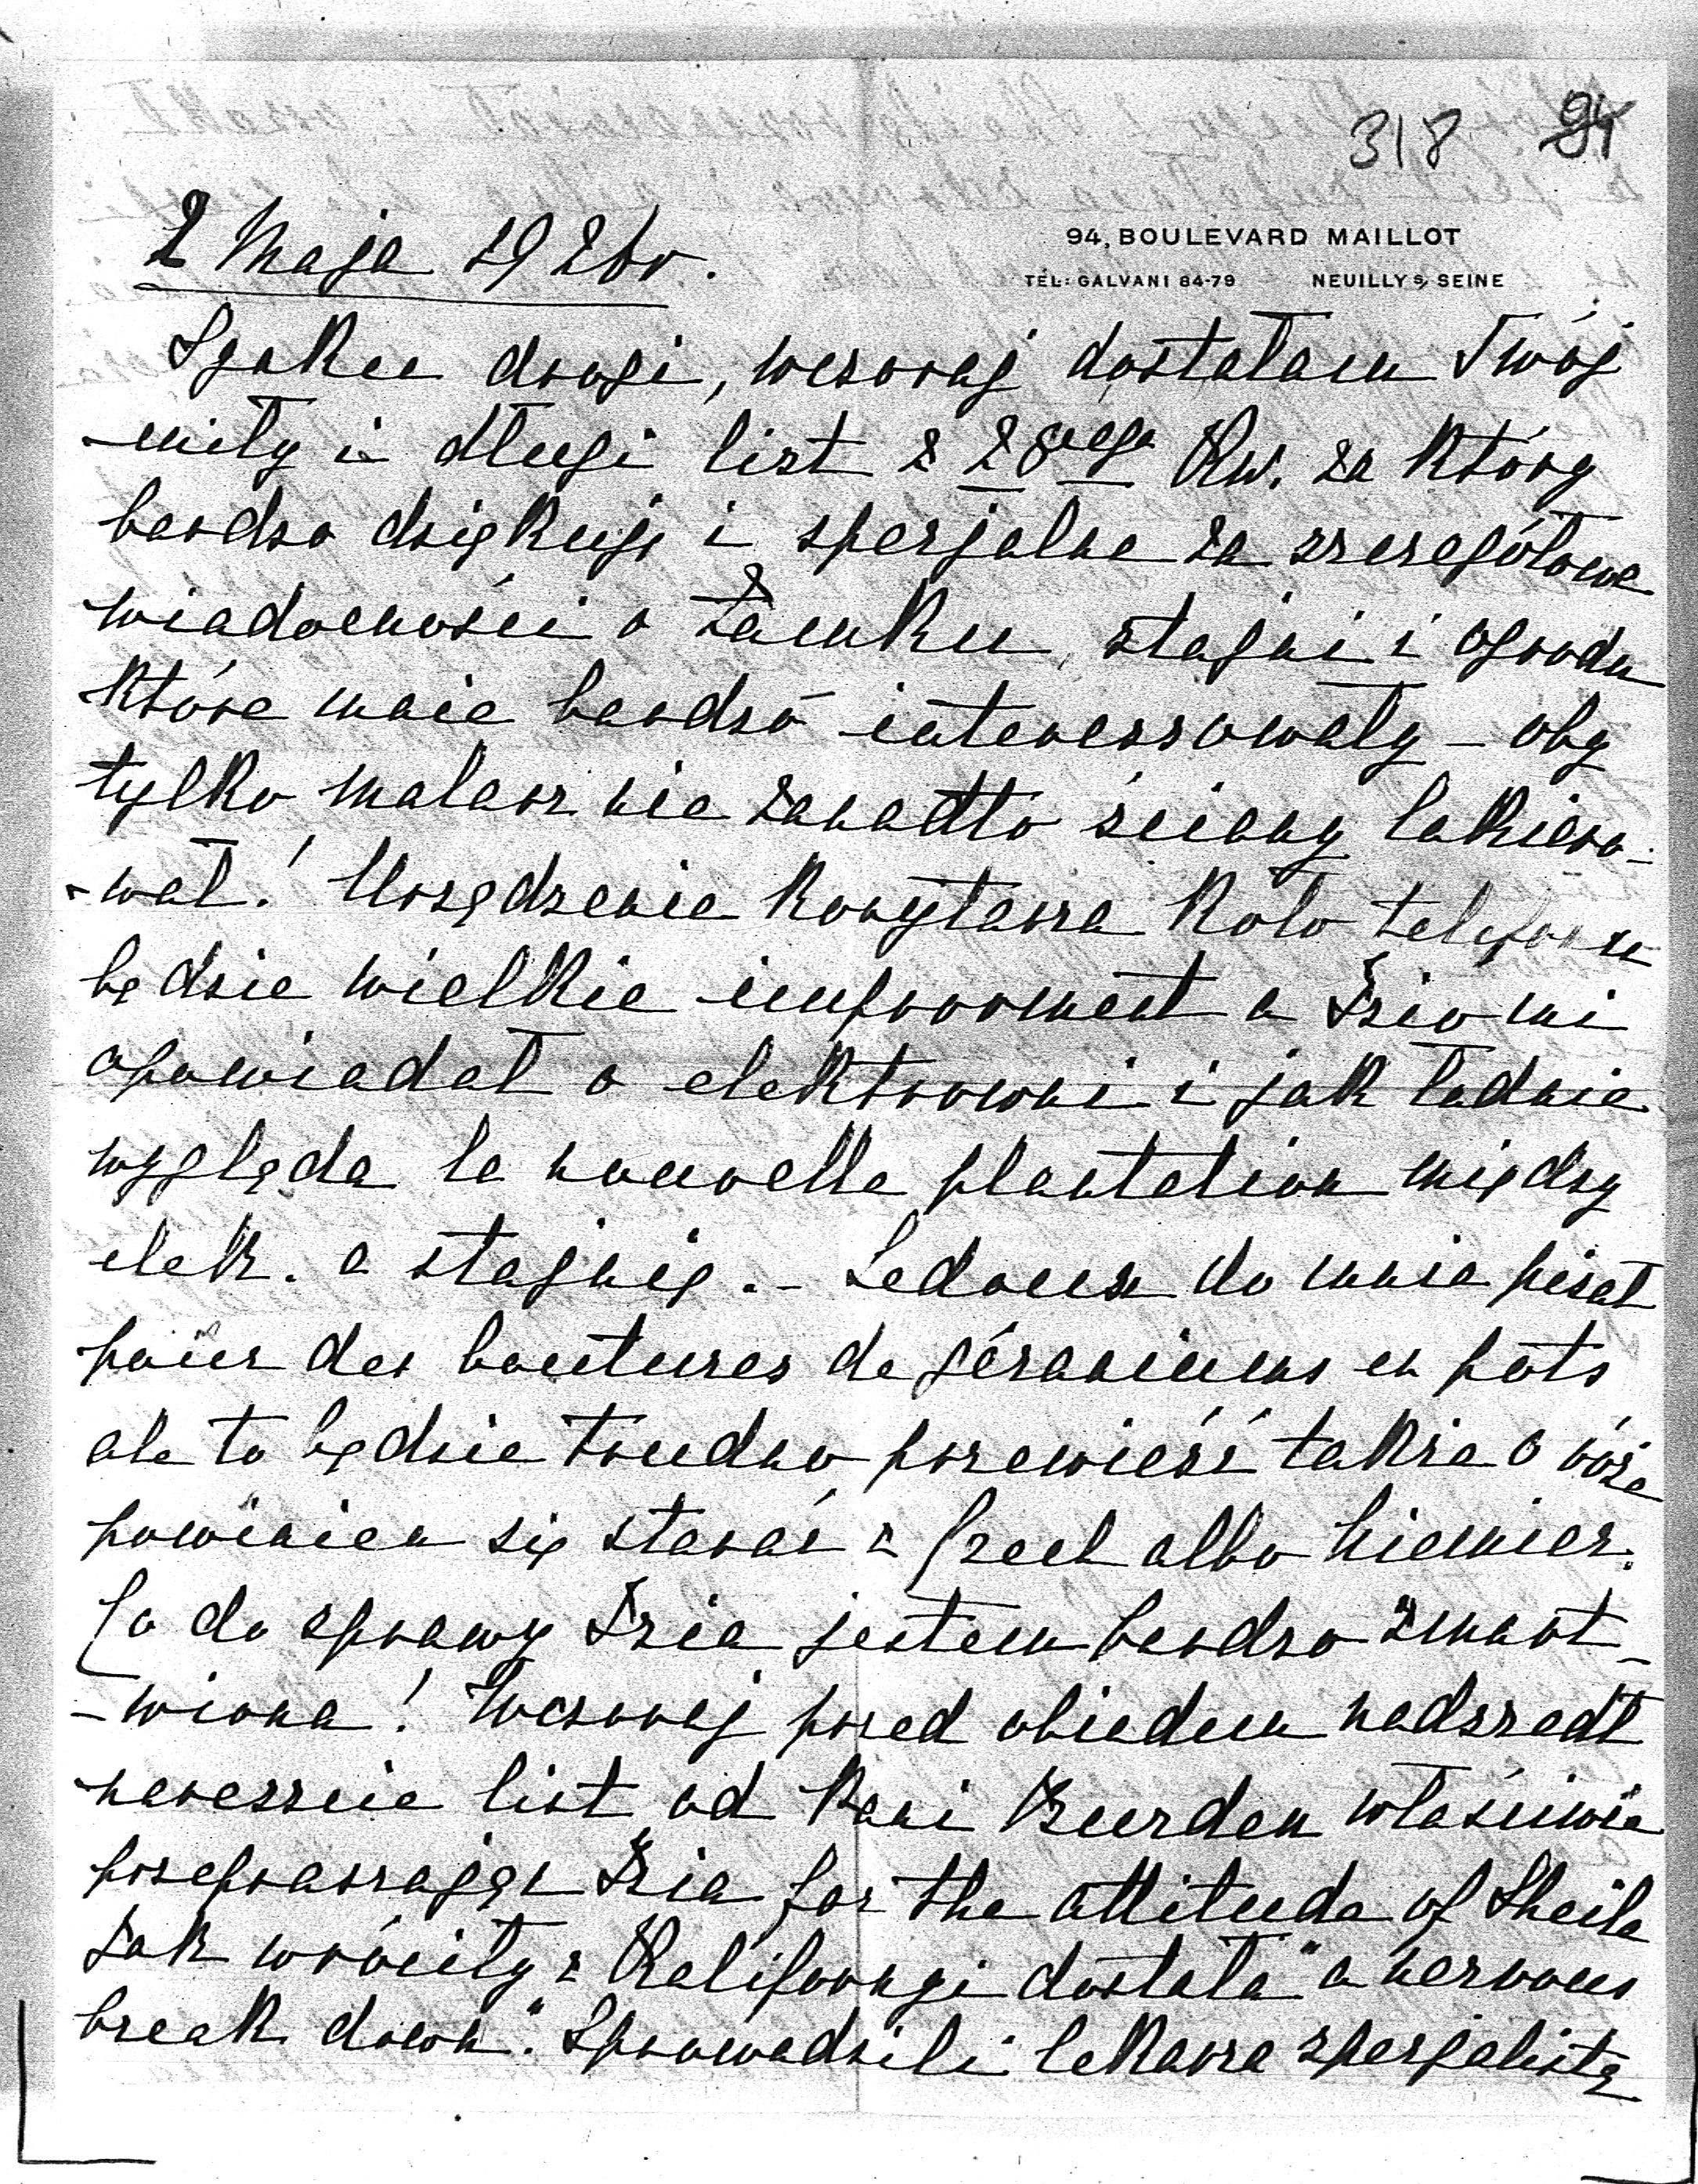 318 94
2 Maja 1926 r.
94, BOULEVARD MAILLOT
TÉL: GALVANI 84-79 NEUILLY S/ SEINE
drogi, wczoraj dostałam Twój
miły i długi list z 28ego Kw. za który
bardzo dziękuję i specjalne za szczegółowe
wiadomości o Zamku, stajni i ogrodu
które mnie bardzo interessowały – oby
tylko malarz nie zanadto ściany lakiero-
-wał! Urządzenie korytarza koło telefonu
będzie wielkie improvment a Szio mi
opowiadał o elektrowni i jak ładnie
wygląda la nouvelle plantation między
elek. a stajnią. – Ledoux do mnie pisał
pour des boutures de géraniums en pots
ale to będzie trudno przewieść także o róże
powinien się starać z Czech albo Niemiec.
Co do sprawy Szia jestem bardzo zmart-
-wiona! Wczoraj przed obiadem nadszedł
nareszcie list od Pani Burden właściwie
przepraszając Szia for the attitude of Sheila
Jak wróciły z Kalifornji dostała "a nervous
break down". Sprowadzili lekarza specjalistę